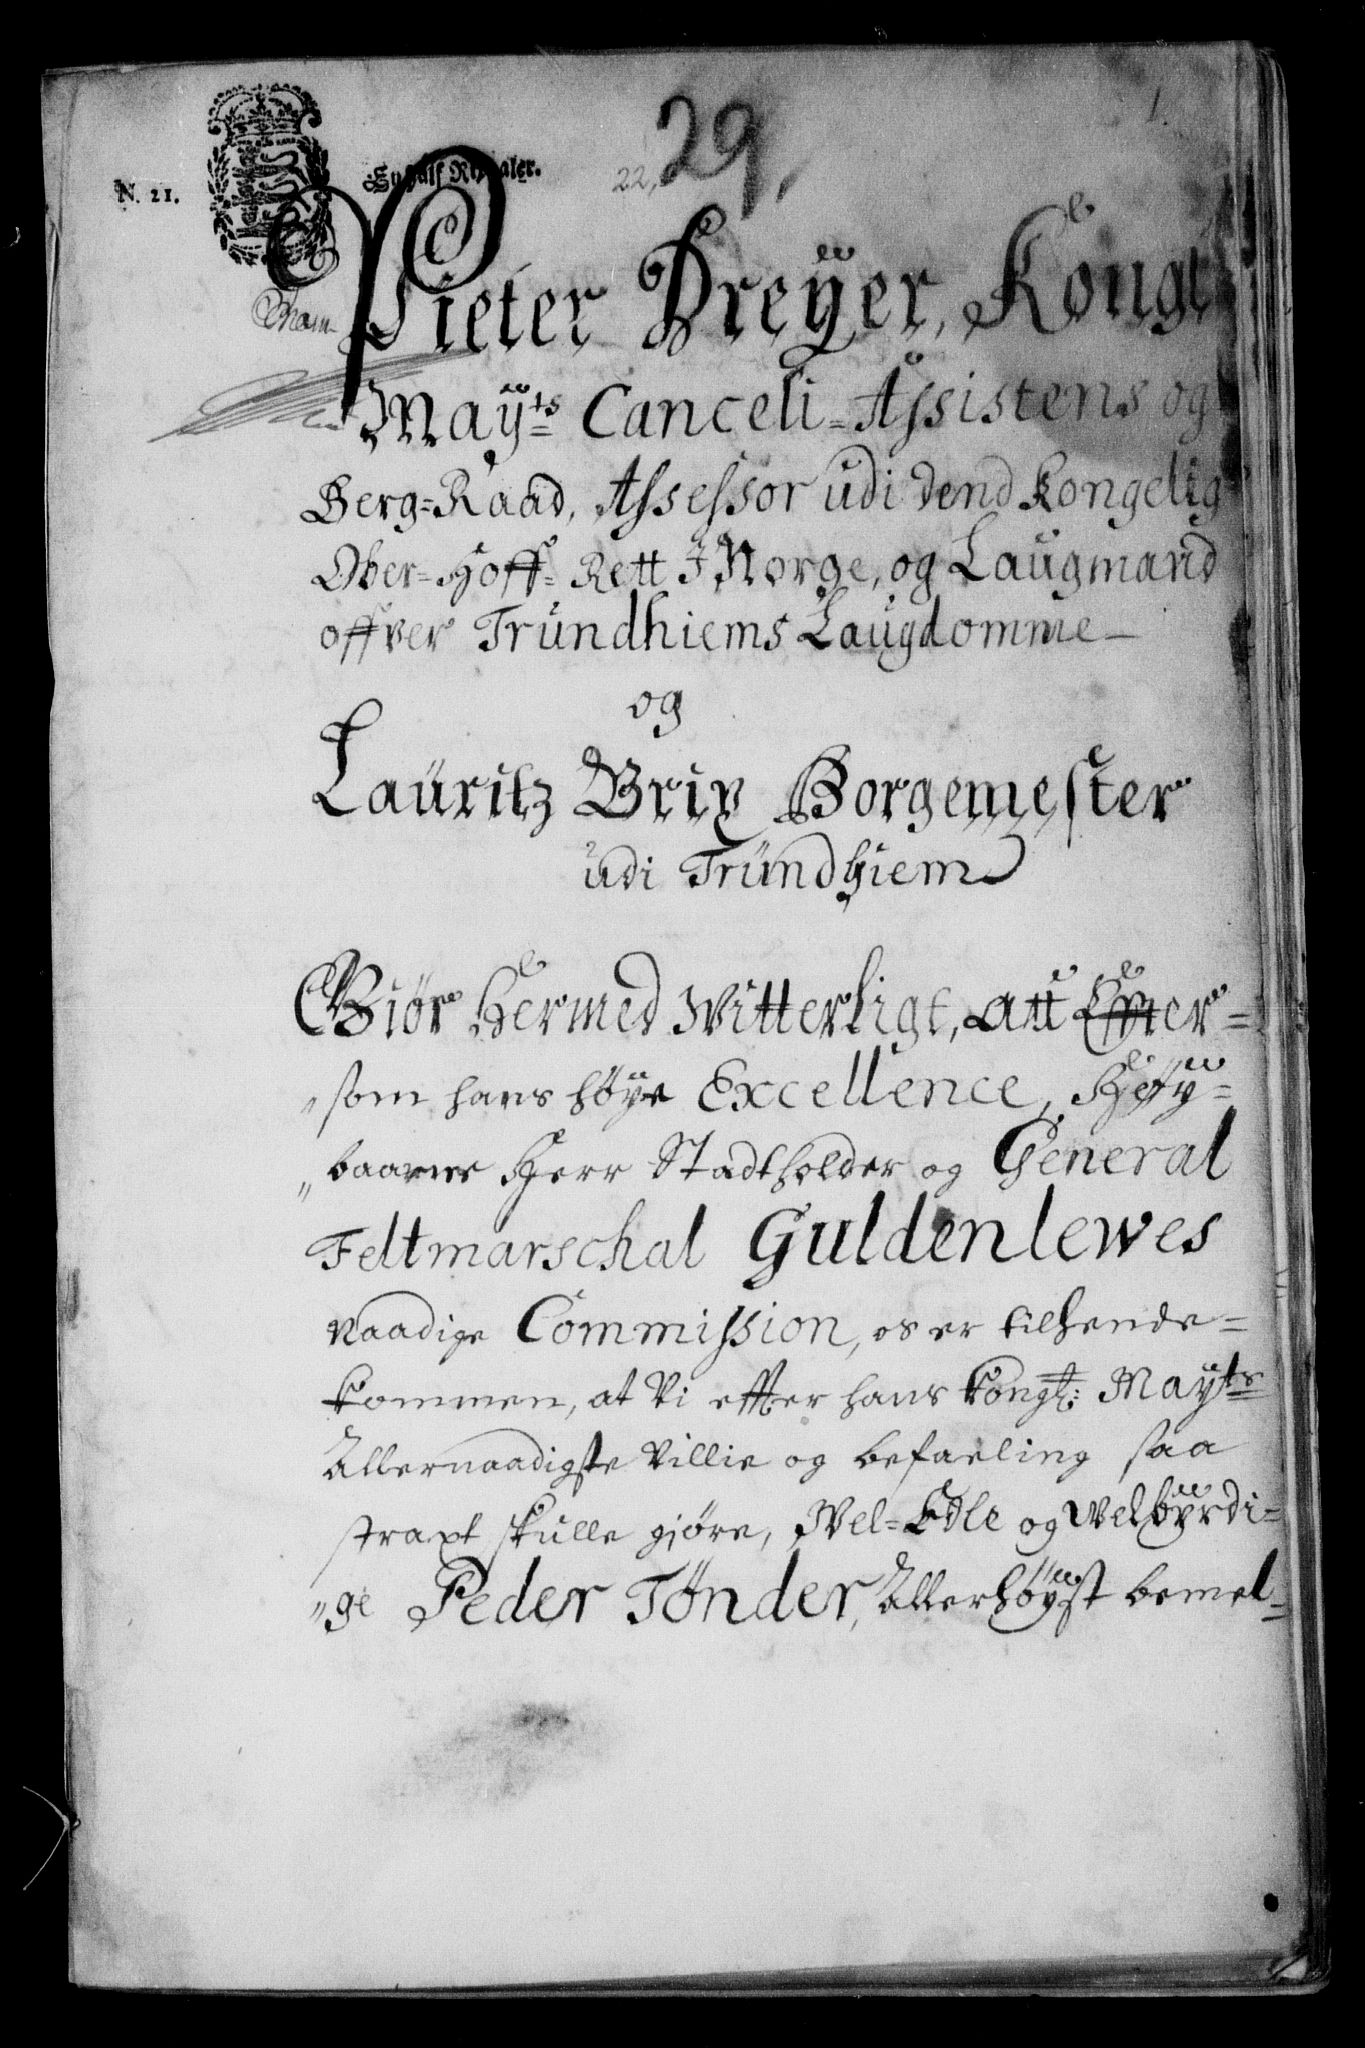 1.
29,
22,
N. 21.
En half Rixdaler.
Pieter Dreÿer, Kongl
Maÿts Canceli-Assistens og
Berg-Raad, Assessor udi dend Kongelig
Ober-Hoff-Rett I Norge, og Laugmand
offver Trundhiems Laugdomme
og
Lauritz Brix Borgemester
udi Trundhiem
Giör Hermed Witterligt, att Effter-
som hans höye Excellence, Höÿ-
baarne Herr Stadtholder og General
Feltmarschal Guldenlewes
Naadige Commission, os er tilhende-
kommen, at Vi effter hans Kongl: Maÿts
Allernaadigste Villie og befaeling saa
straxt skulle gjöre, Wel-Edle og Welbÿrdi-
ge Peder Tønder, Allerhöÿst bemel-